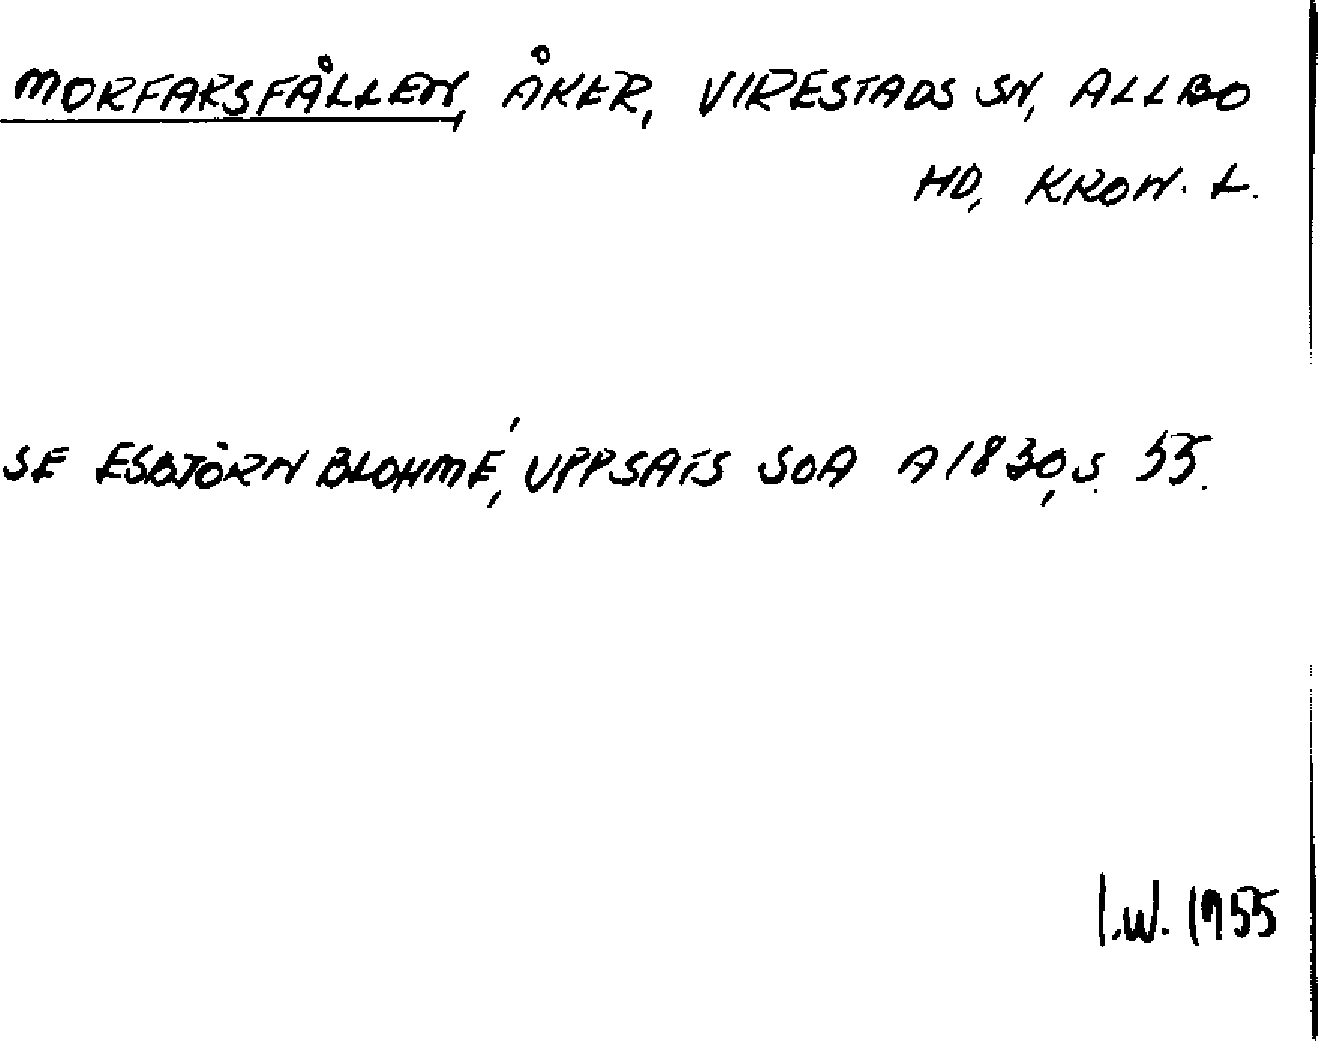 MORFARSFÅLLEN, ÅKER, VIRESTADS SN, ALLBO
HD, KRON. L.
SE ESBJÖRN BLOHMÉ, UPPSATS SOA A1830, S. 55.
I.W. 1955